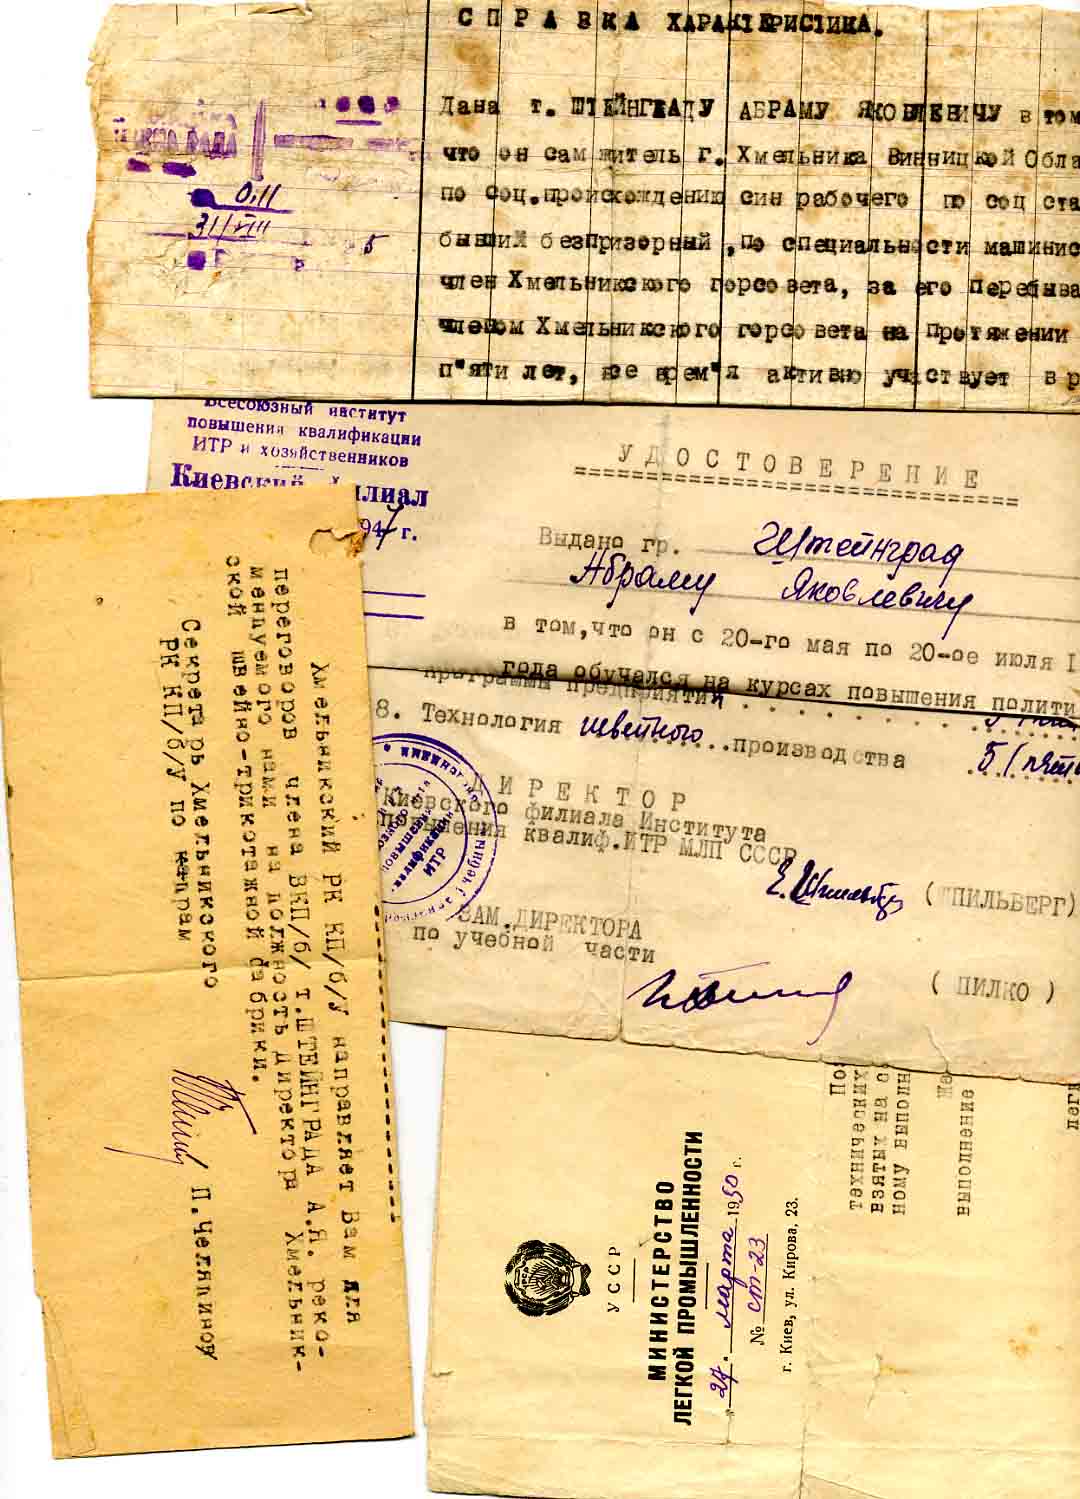 СПРАВКА ХАРАКТЕРИСТИКА.
РАДА
О.II
31/VIII
Дана т. ШТЕЙНГРАДУ АБРАМУ ЯКОВЛЕВИЧУ в том
что он сам житель г. Хмельника Винницкой Обла
по соц.происхождению син рабочего по соц ста
бывший безпризорный ,По специальности машинис
член Хмельникского горсовета, за его Перебыва
членом Хмельникского горсовета на Протяжении
п"яти лет, все врем"я активно участвует в р
Всесоюзный институт
повышения квалификации
ИТР и хозяйственников
Киевский филиал
947 г.
УДОСТОВЕРЕНИЕ
Выдано гр. Штейнград
Абраму Яковлевичу
в том,что он с 20-го мая по 20-ое июля I
года обучался на курсах повышения полити
программы предприятий
8. Технология швейного производства 5/пять
ДИРЕКТОР
Киевского филиала Института
повышения квалиф.ИТР МЛП СССР
(ШПИЛЬБЕРГ)
ЗАМ.ДИРЕКТОРА
по учебной части
( ПИЛКО )
повышения
квалификации
ИТР
Хмельникский РК КП/б/У направляет Вам для
переговоров члена ВКП/б/ т.ШТЕЙНГРАДА А.Я. реко-
мендуемого нами на должность директора Хмельник-
ской швейно-трикотажной фабрики.
Секретарь Хмельникского
РК КП/б/У по кадрам
П.Челяпинов
УССР
МИНИСТЕРСТВО
ЛЕГКОЙ ПРОМЫШЛЕННОСТИ
„27. марта 1950 г.
№ ст-23
г. Киев, ул. Кирова, 23.
По
технических
взятых на с
ному выполн
Же
выполнение
легк